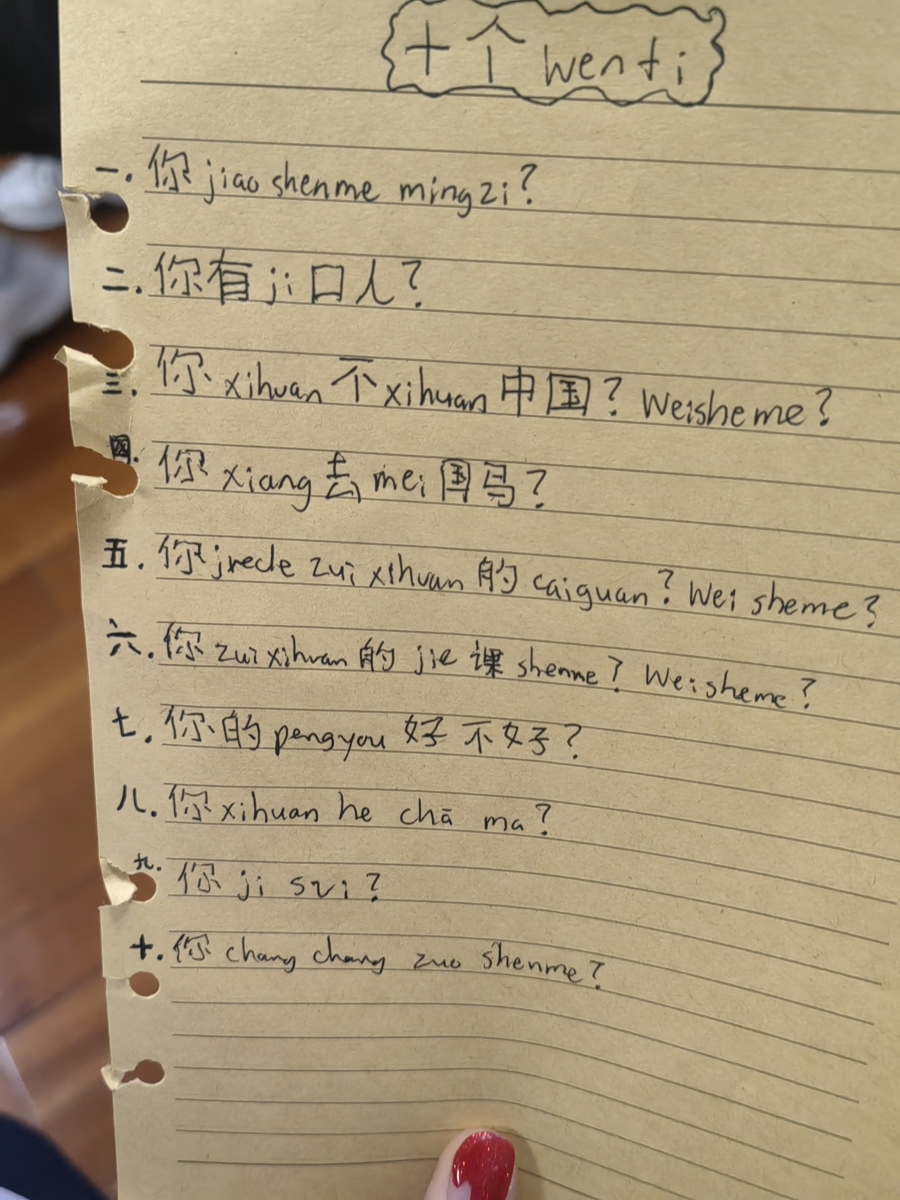 十个 wenti
一. 你 jiao shenme mingzi?
二. 你有 ji 口人?
三. 你 xihuan 不 xihuan 中国? Weisheme?
四. 你 xiang 去 mei 国吗?
五. 你 jrede zui xihuan 的 caiguan? Wei sheme?
六. 你 zui xihuan 的 jie 课 shenme? Weisheme?
七. 你的 pengyou 好不好?
八. 你 xihuan he chā ma?
九. 你 ji sui?
十. 你 chang chang zuo shenme?